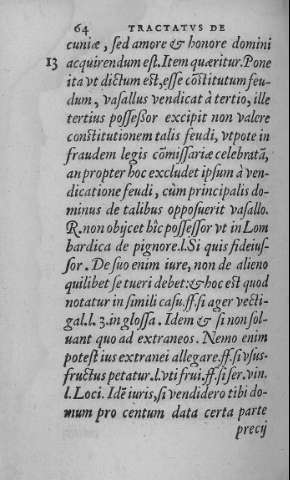 64 TRACTATVS DE
cuniæ, sed amore & honore domini
13 acquirendum est. Item quæritur. Pone
ita vt dictum est, esse cõstitutum feu-
dum, vasallus vendicat à tertio, ille
tertius possessor excipit non valere
constitutionem talis feudi, vtpote in
fraudem legis cõmissariæ celebratã,
an propter hoc excludet ipsum à ven-
dicatione feudi, cùm principalis do-
minus de talibus opposuerit vasallo.
R. non obijcet hic possessor vt in Lom
bardica de pignore.l. Si quis fideius-
sor. De suo enim iure, non de alieno
quilibet se tueri debet: & hoc est quod
notatur in simili casu. ff. si ager vecti-
gal. l. 3. in glossa. Idem & si non sol-
uant quo ad extraneos. Nemo enim
potest ius extranei allegare. ff. si vsus-
fructus petatur. l. vti frui. ff. si ser. vin.
l. Loci. Idẽ iuris, si vendidero tibi do-
mum pro centum data certa parte
precij